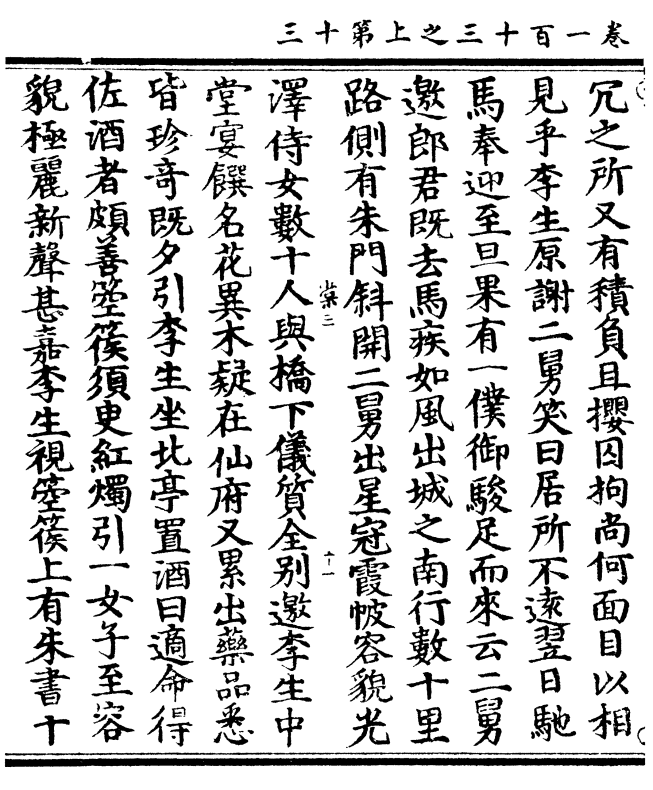 卷一百十三之上第十三
冗之所又有積負且攖囚拘尚何面目以相
見乎李生原謝二舅笑曰居所不遠翌日馳
馬奉迎至旦果有一僕御駿足而來云二舅
邀郎君既去馬疾如風出城之南行數十里
路側有朱門斜開二舅出星冠霞帔容貌光
澤侍女數十人與橋下儀質全別邀李生中
堂宴饌名花異木疑在仙府又累出藥品悉
皆珍奇既夕引李生坐北亭置酒曰適命得
佐酒者頗善箜篌須臾紅燭引一女子至容
貌極麗新聲甚嘉李生視箜篌上有朱書十
棠三
十一